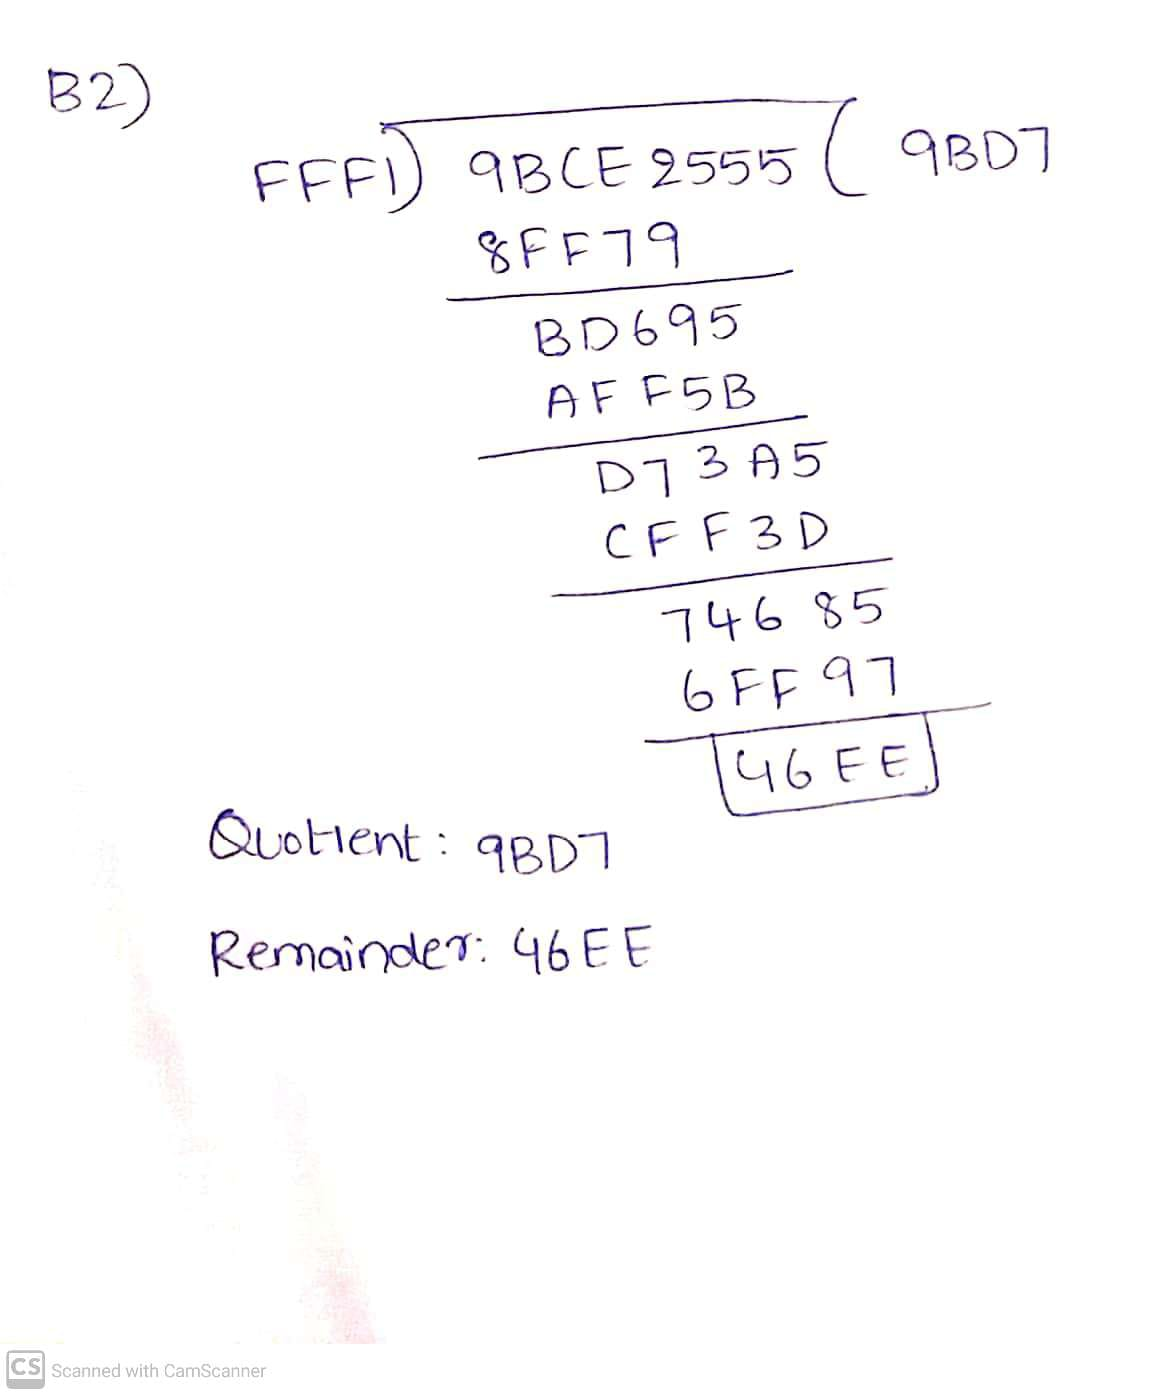 B2)
FFF1) 9BCE 2555 ( 9BD7
8FF79
BD695
AFF5B
D73A5
CFF3D
74685
6FF97
46EE
Quotient: 9BD7
Remainder: 46EE
CS Scanned with CamScanner